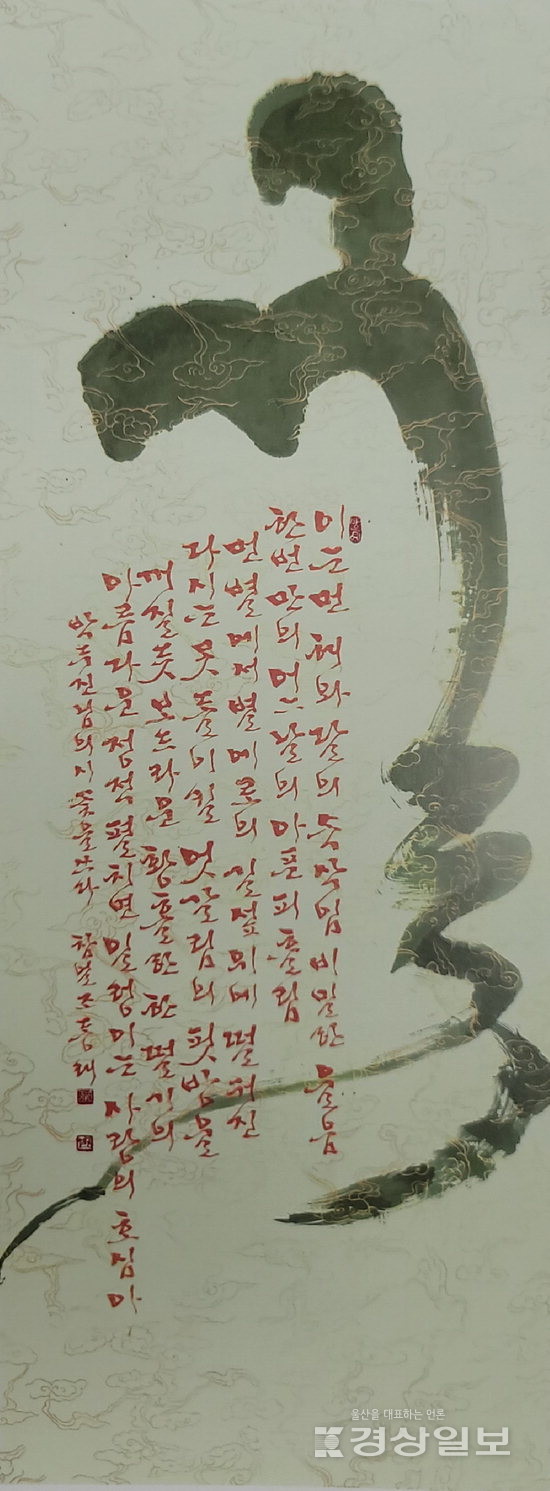 이는 먼 해와 달의 속삭임 비밀한 울음
한번만의 어느날의 아픈 피 흘림
먼 별에서 별에로의 길섶 위에 떨궈진
다시는 못 돌이킬 엇갈림의 핏방울
꺼질듯 보드라운 황홀한 한 떨기의
아름다운 정적 펼치면 일렁이는 사랑의 호심아
박두진님의 시 꽃을 쓰다
울산을 대표하는 언론
경상일보